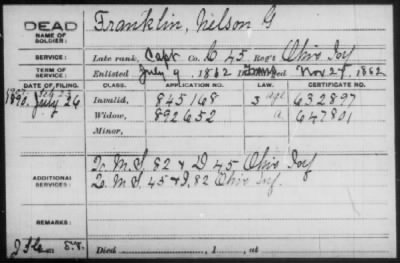 DEAD
NAME OF SOLDIER: Franklin, Nelson G
SERVICE: Late rank, Capt Co. C 45 Reg't Ohio Inf
TERM OF SERVICE: Enlisted July 9, 1862 Nov 27, 1862
DATE OF FILING. CLASS. APPLICATION NO. LAW. CERTIFICATE NO.
1890, July 26 Invalid, 845168 632897
Widow, 892652 a 647801
Minor,
ADDITIONAL SERVICES: 82 & D 45 Ohio Inf
45 & I, 82 Ohio Inf.
REMARKS:
Died , 1 , at